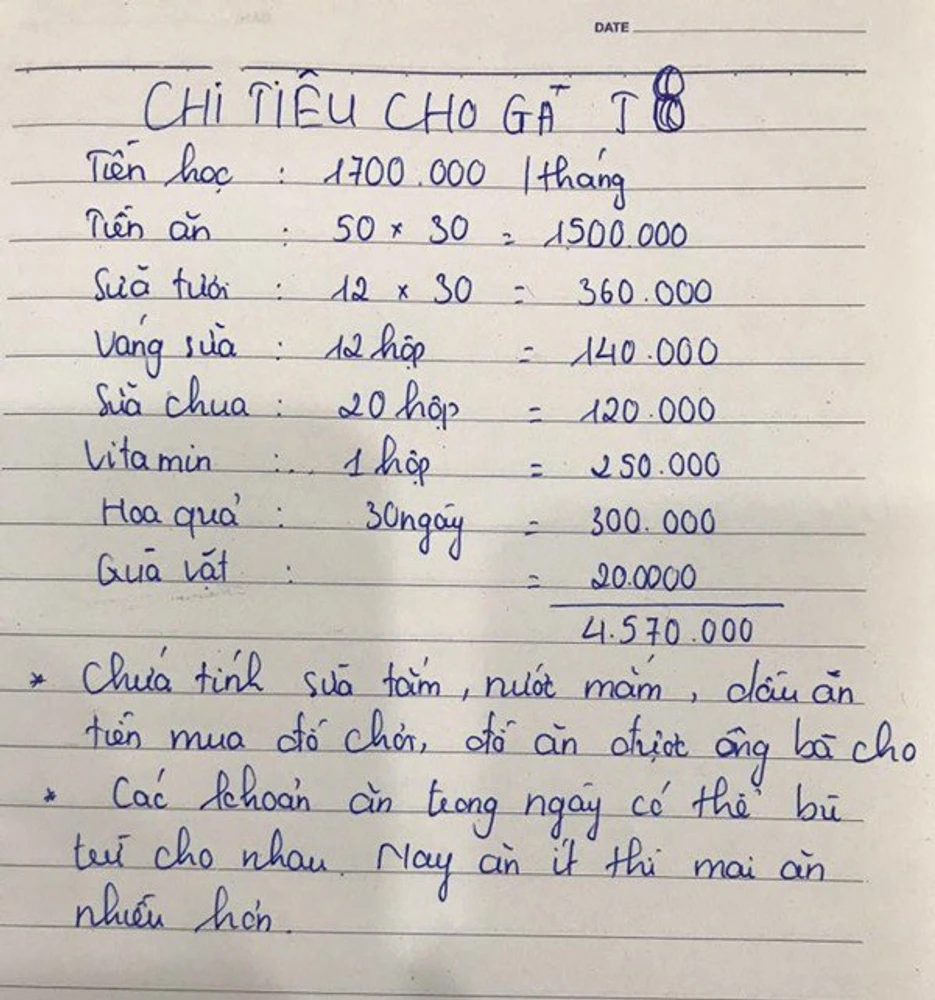 DATE
CHI TIÊU CHO GÀ T8
Tiền học : 1700.000 /tháng
Tiền ăn : 50 × 30 = 1500.000
Sữa tươi : 12 × 30 = 360.000
Váng sữa : 12 hộp = 140.000
Sữa chua : 20 hộp = 120.000
Vitamin : 1 hộp = 250.000
Hoa quả : 30 ngày = 300.000
Quà vặt : = 20.0000
4.570.000
* Chưa tính sữa tắm, nước mắm, dầu ăn
tiền mua đồ chơi, đồ ăn được ông bà cho
* Các khoản ăn trong ngày có thể bù
trừ cho nhau. Nay ăn ít thì mai ăn
nhiều hơn.